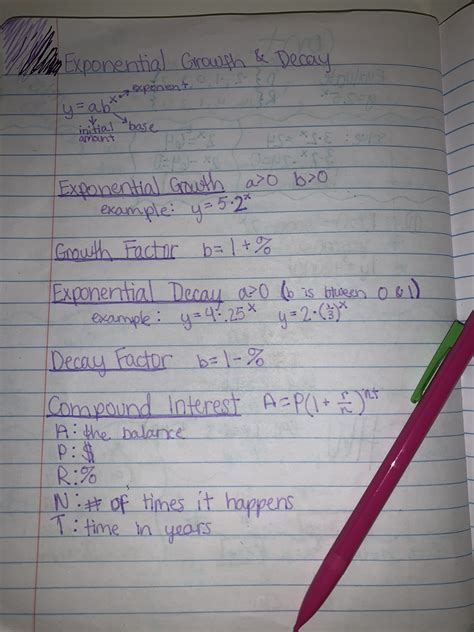 Exponential Growth & Decay
y = ab^x → exponent
initial amount base
Exponential Growth a>0 b>0
example: y = 5·2^x
Growth Factor b = 1 + %
Exponential Decay a>0 (b is btween 0 & 1)
example: y = 4·.25^x y = 2·(⅓)^x
Decay Factor b = 1 - %
Compound Interest A = P(1 + r/n)^nt
A: the balance
P: $
R: %
N: # of times it happens
T: time in years